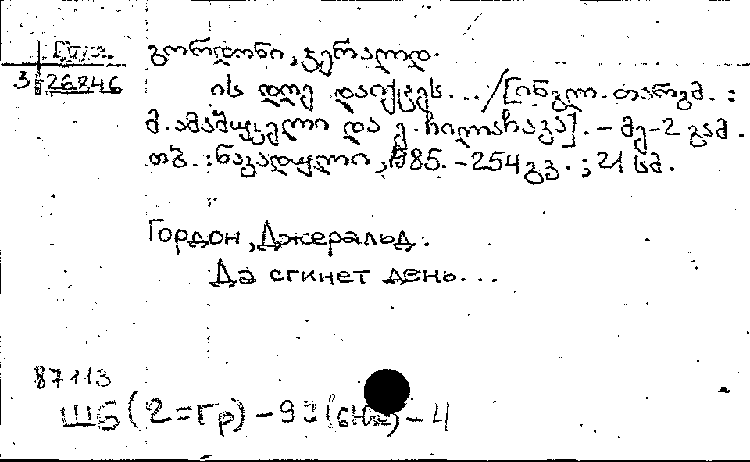 გორდონი, ჯერალდ.
3 26246
ის დღე დაიქცეს... / [ინგლ. თარგმ. :
მ. ამაშუკელი და ე. ჩილაჩავა]. – მე-2 გამ.
თბ. : ნაკადული, 1985. – 254 გვ. ; 21 სმ.
Гордон, Джеральд.
Да сгинет день...
87113
ШБ(2=Гр) – – 4